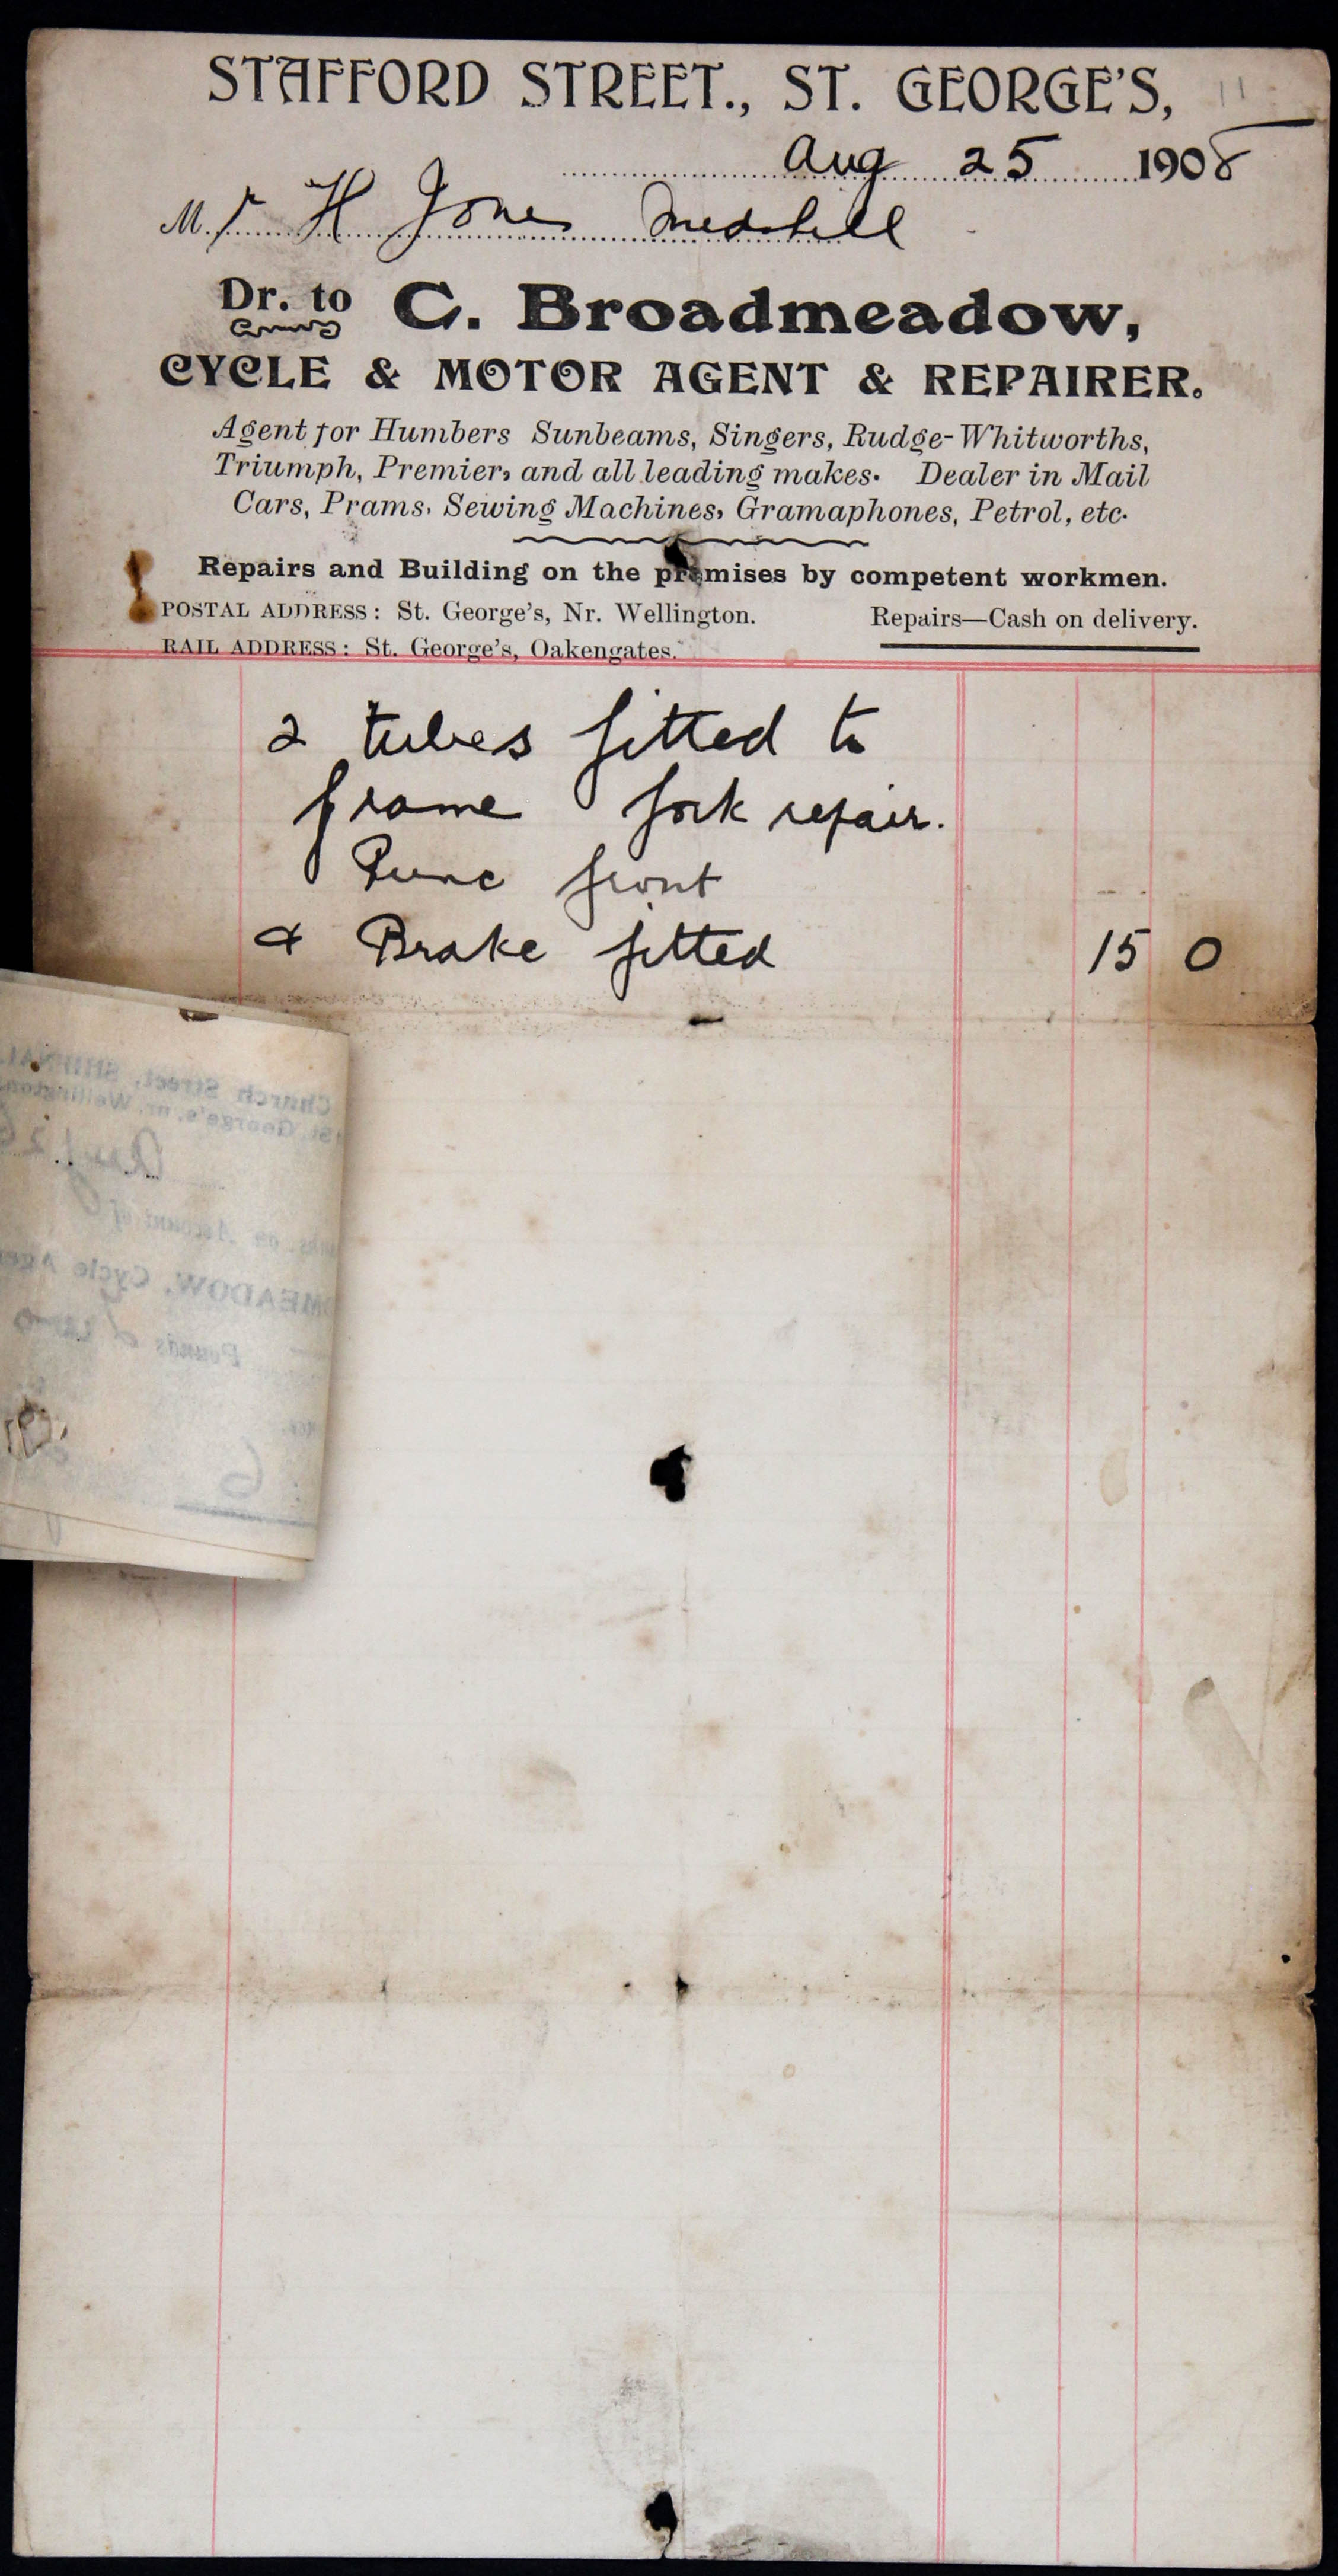 STAFFORD STREET., ST. GEORGE'S,
Aug 25 1908
Mr H Jones
Dr. to C. Broadmeadow,
CYCLE & MOTOR AGENT & REPAIRER.
Agent for Humbers Sunbeams, Singers, Rudge-Whitworths,
Triumph, Premier, and all leading makes. Dealer in Mail
Cars, Prams, Sewing Machines, Gramaphones, Petrol, etc.
Repairs and Building on the premises by competent workmen.
POSTAL ADDRESS: St. George's, Nr. Wellington. Repairs—Cash on delivery.
RAIL ADDRESS: St. George's, Oakengates.
2 tubes fitted to
frame fork repair.
Punc front
& Brake fitted 15 0
Church Street, SHIFNAL
St. George's, nr. Wellington
Aug 26
on Account of
MEADOW, Cycle Age
Pounds
6